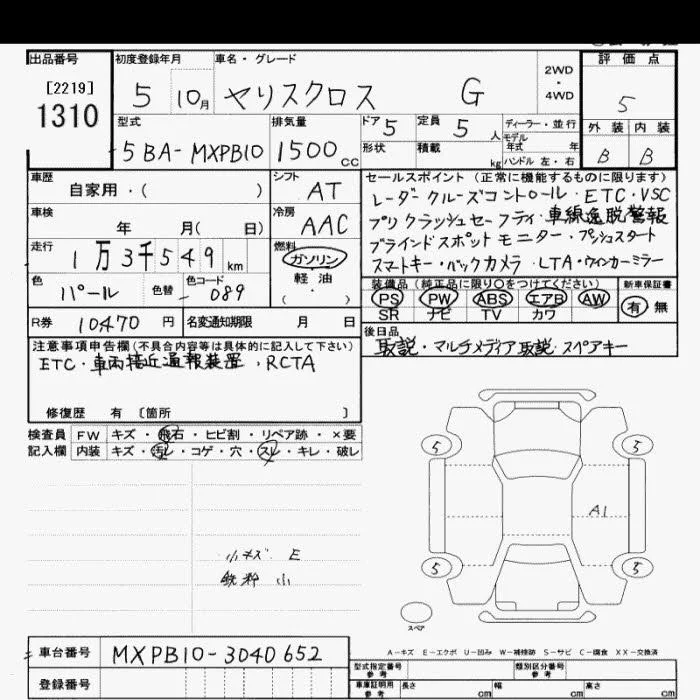 出品番号 初度登録年月 車名・グレード 2WD・4WD 評価点
[2219]
1310
5 10月 ヤリスクロス G 5
型式 排気量 ドア 5 定員 5 人 ディーラー・並行 外装 内装
5BA-MXPB10 1500cc 形状 積載 kg モデル年式 年 ハンドル 左・右 B B
車歴 自家用・( ) シフト AT セールスポイント(正常に機能するものに限ります)
レーダークルーズコントロール・ETC・VSC
車検 年 月( 日) 冷房 AAC プリクラッシュセーフティ・車線逸脱警報
走行 1万3千549km 燃料 ガソリン ブラインドスポットモニター・プッシュスタート
軽油 スマートキー・バックカメラ・LTA・ウィンカーミラー
( ・ )
色 パール 色替 色コード 089 装備品(純正品に限り○をつけてください) 新車保証書
PS PW ABS エアB AW 有・無
SR ナビ TV カワ
R券 10470円 名変通知期限 月 日 後日品
取説・マルチメディア取説・スペアキー
注意事項申告欄(不具合内容等は具体的に記入して下さい)
ETC・車両接近通報装置、RCTA
修復歴 有 〔箇所 〕
検査員 FW キズ・飛石・ヒビ割・リペア跡・×要
記入欄 内装 キズ・汚レ・コゲ・穴・スレ・キレ・破レ
5 5
A1
小キズ E
鉄粉 小
5 5
スペア
A-キズ E-エクボ U-凹み W-補修跡 S-サビ C-腐食 XX-交換済
車台番号 MXPB10-3040652
型式指定番号 参考 類別区分番号 参考
登録番号 車庫証明用 参考 長さ cm 幅 cm 高さ cm